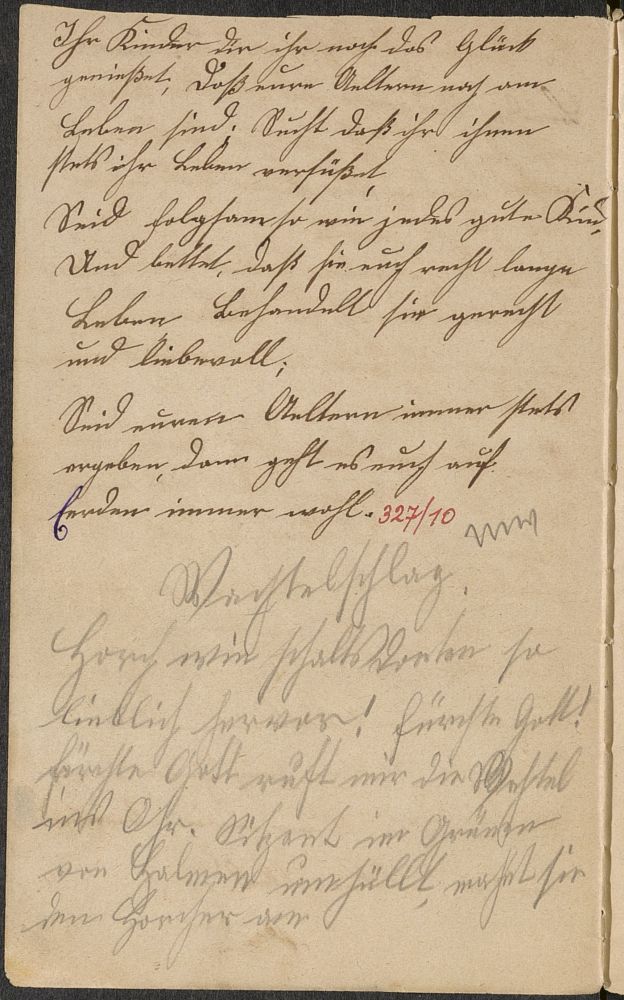 Ihr Kinder die ihr noch das Glück
genießet, Daß eure Aeltern noch am
Leben sind; Sucht daß ihr ihnen
stets ihr Leben versüßet
Seid folgsam so wie jedes gute Kind,
Und bettet, daß sie euch recht lange
Leben Behandelt sie gerecht
und liebevoll;
Seid euren Aeltern immer stets
ergeben, dann geht es euch auf
Erden immer wohl. 327/10
Wachtelschlag.
Horch wie schalts dorten so
lieblich hervor! fürchte Gott!
fürchte Gott ruft mir die Wachtel
ins Ohr. Sitzent im Grünen
von Halmen umhüllt, mahnt sie
den Horcher am